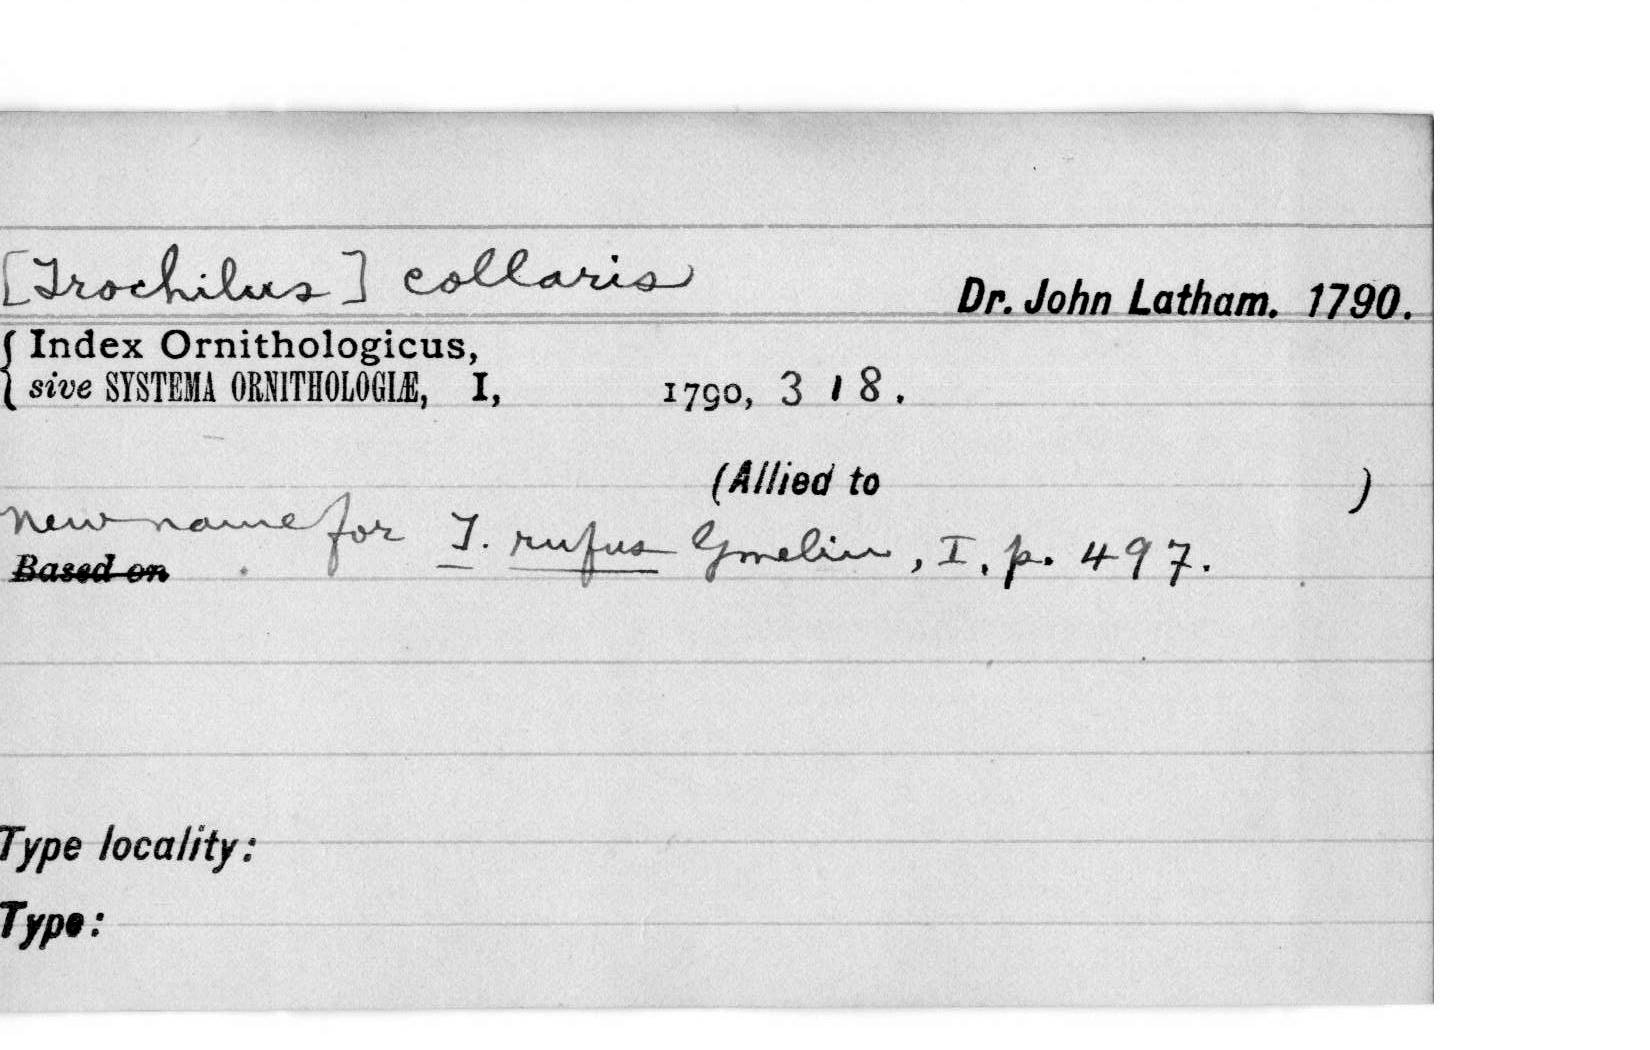 [Trochilus] collaris
Dr. John Latham. 1790.
Index Ornithologicus,
sive SYSTEMA ORNITHOLOGIÆ, I, 1790, 318.
(Allied to )
New name for T. rufus Gmelin, I, p. 497.
Based on
Type locality:
Type: